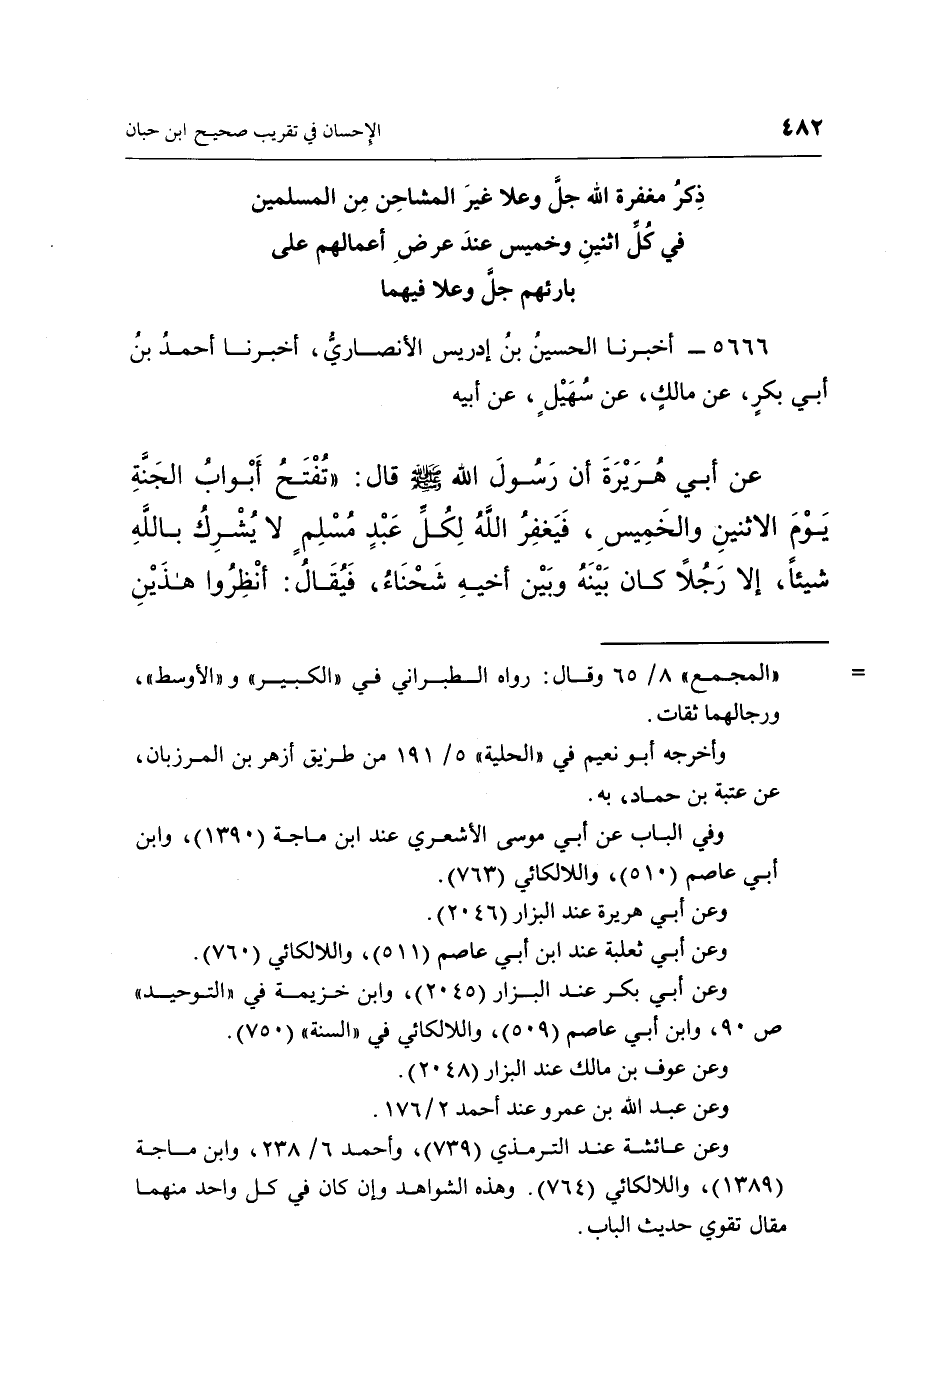 ٤٨٢ الإحسان في تقريب صحيح ابن حبان
ذِكرُ مغفرة الله جلَّ وعلا غيرَ المشاحِن مِن المسلمين
في كُلِّ اثنينِ وخميس عندَ عرضِ أعمالهم على
بارئهم جلَّ وعلا فيهما
٥٦٦٦ ــ أخبرنا الحسينُ بنُ إدريس الأنصاريُّ، أخبرنا أحمدُ بنُ
أبي بكرٍ، عن مالكٍ، عن سُهَيْلٍ، عن أبيه
عن أبي هُرَيْرَةَ أن رَسُولَ الله ﷺ قال: «تُفْتَحُ أَبْوابُ الجَنَّةِ
يَوْمَ الاثنينِ والخَمِيسِ، فَيَغفِرُ اللَّهُ لِكُلِّ عَبْدٍ مُسْلِمٍ لا يُشْرِكُ باللَّهِ
شيئاً، إلا رَجُلاً كان بَيْنَهُ وبَيْن أخيهِ شَحْنَاءُ، فَيُقَالُ: أنْظِرُوا هٰذَيْنِ
= «المجمع» ٨/ ٦٥ وقال: رواه الطبراني في «الكبير» و«الأوسط»،
ورجالهما ثقات.
وأخرجه أبو نعيم في «الحلية» ٥/ ١٩١ من طريق أزهر بن المرزبان،
عن عتبة بن حماد، به.
وفي الباب عن أبي موسى الأشعري عند ابن ماجة (١٣٩٠)، وابن
أبي عاصم (٥١٠)، واللالكائي (٧٦٣).
وعن أبي هريرة عند البزار (٢٠٤٦).
وعن أبي ثعلبة عند ابن أبي عاصم (٥١١)، واللالكائي (٧٦٠).
وعن أبي بكر عند البزار (٢٠٤٥)، وابن خزيمة في «التوحيد»
ص ٩٠، وابن أبي عاصم (٥٠٩)، واللالكائي في «السنة» (٧٥٠).
وعن عوف بن مالك عند البزار (٢٠٤٨).
وعن عبد الله بن عمرو عند أحمد ١٧٦/٢.
وعن عائشة عند الترمذي (٧٣٩)، وأحمد ٦/ ٢٣٨، وابن ماجة
(١٣٨٩)، واللالكائي (٧٦٤). وهذه الشواهد وإن كان في كل واحد منهما
مقال تقوي حديث الباب.